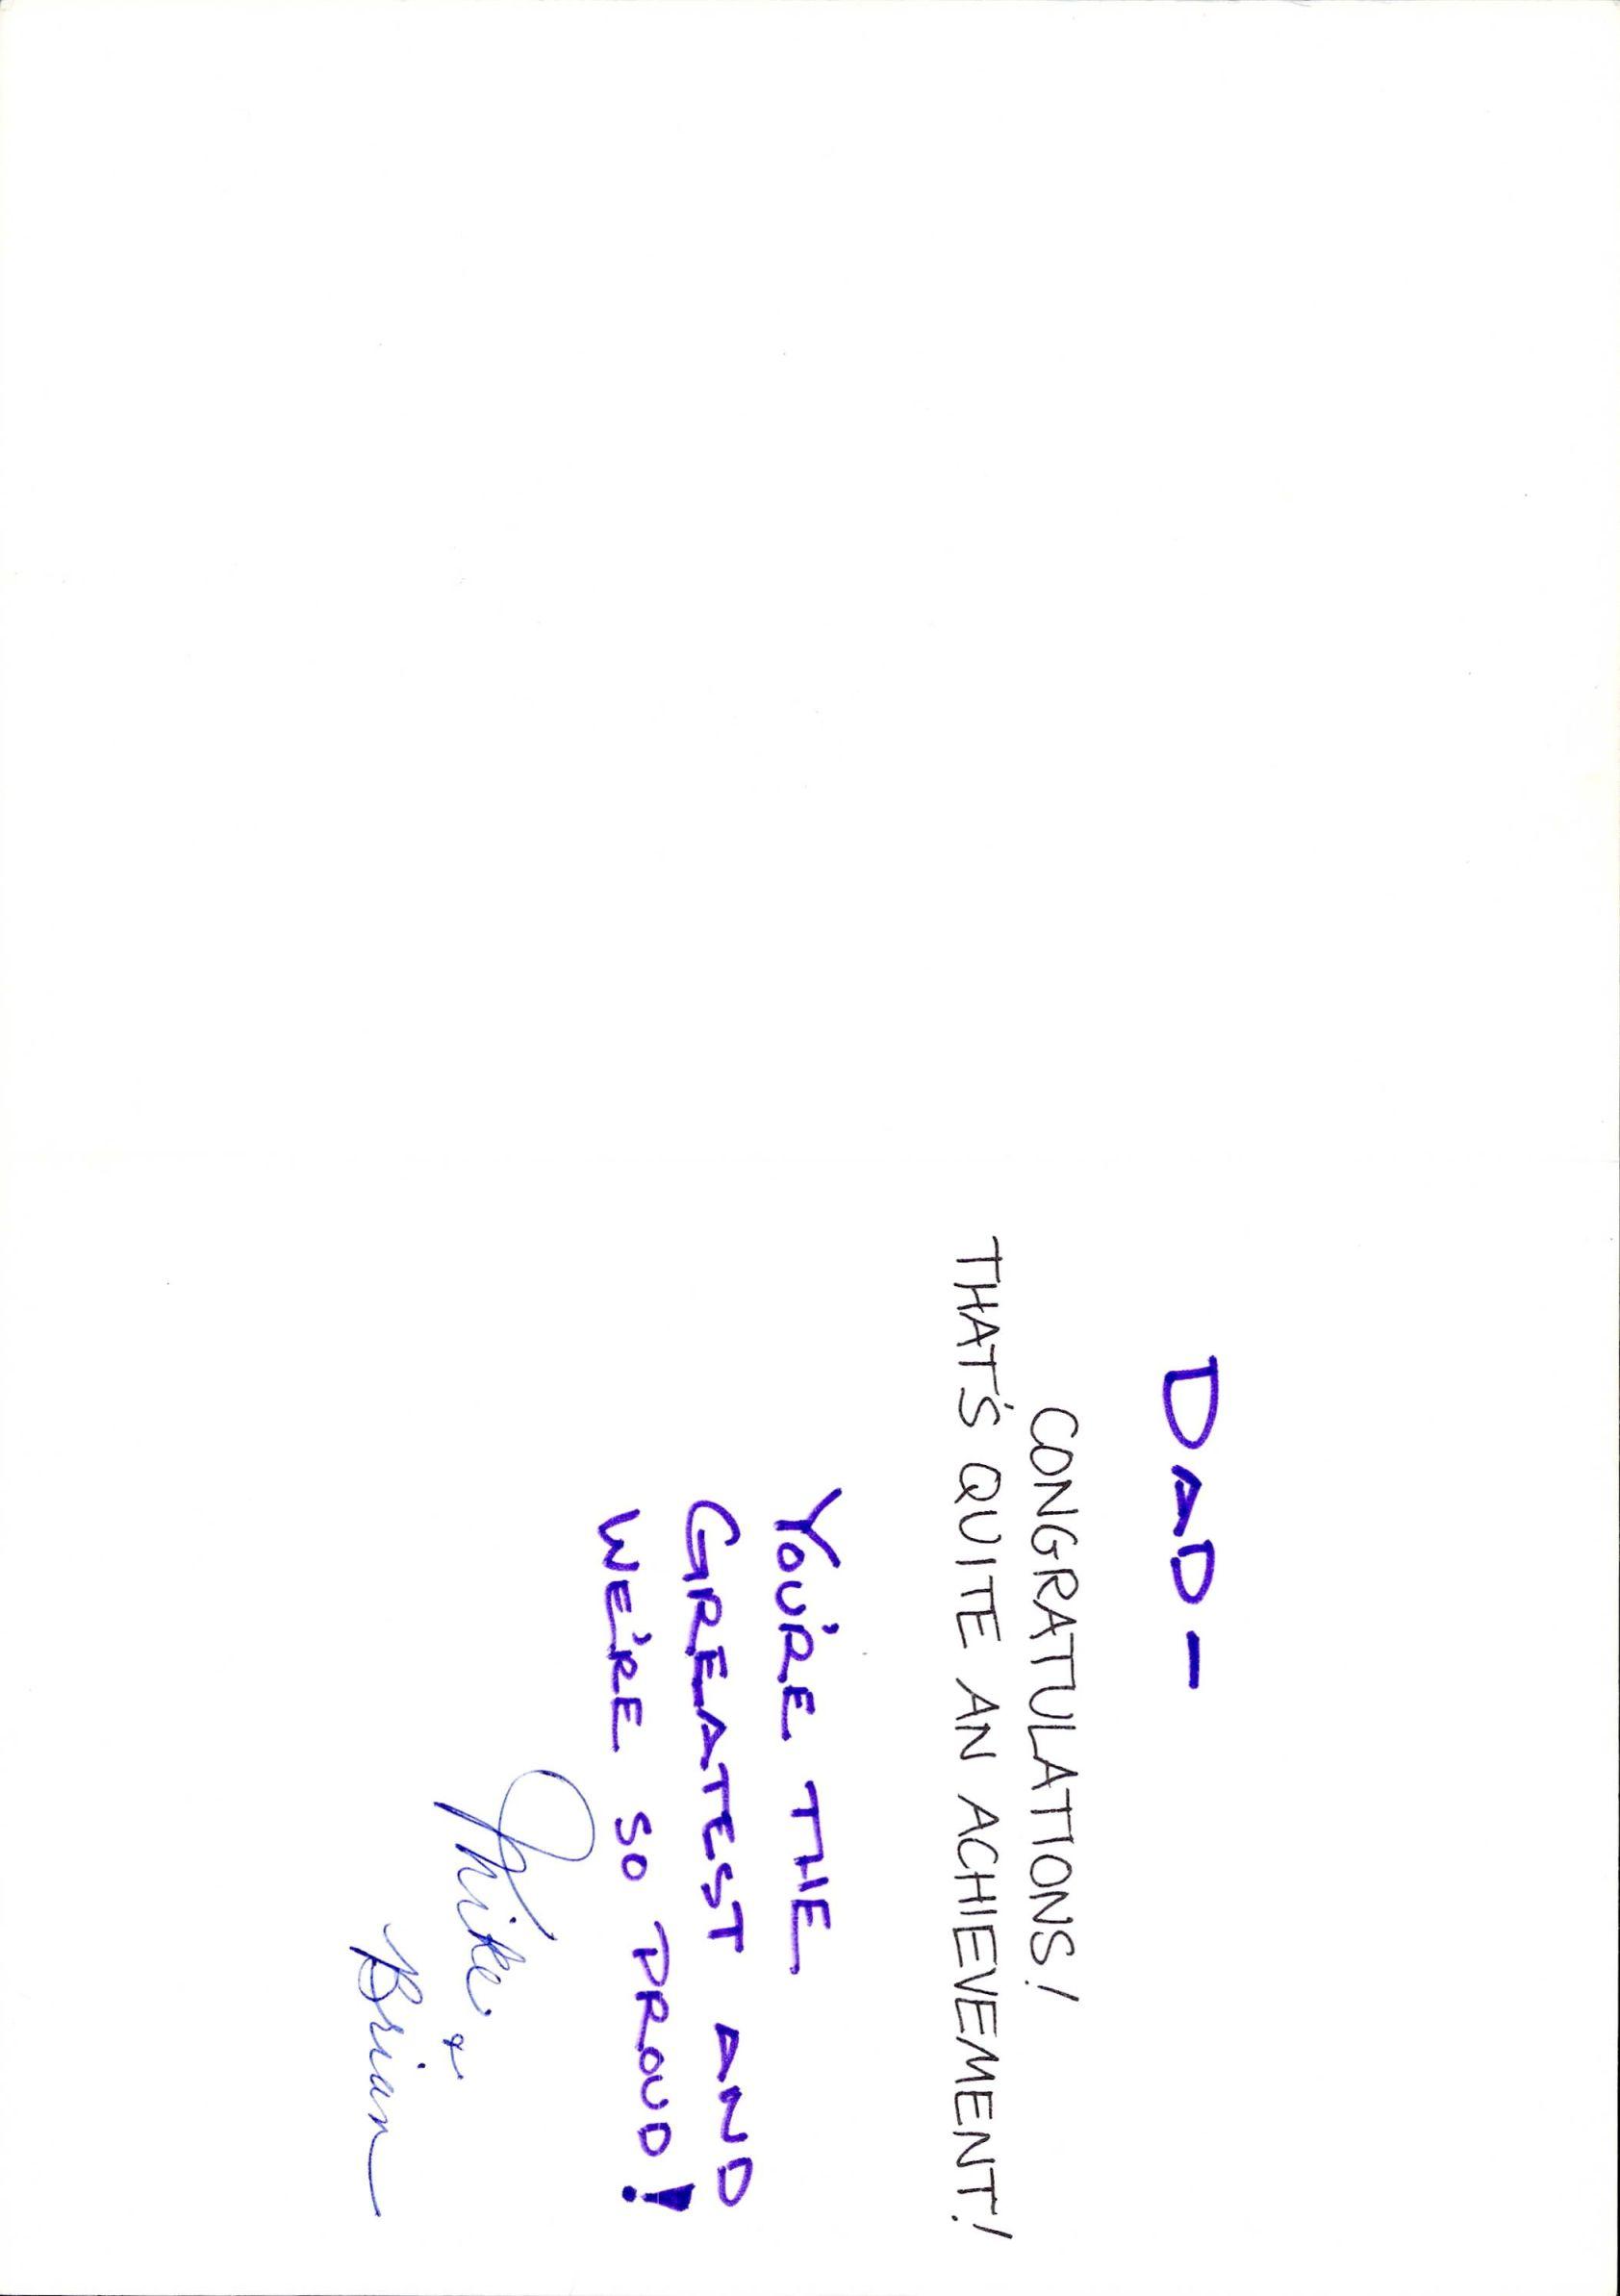 DAD -
CONGRATULATIONS!
THAT'S QUITE AN ACHIEVEMENT!
YOU'RE THE
GREATEST AND
WE'RE SO PROUD!
Mike &
Brian